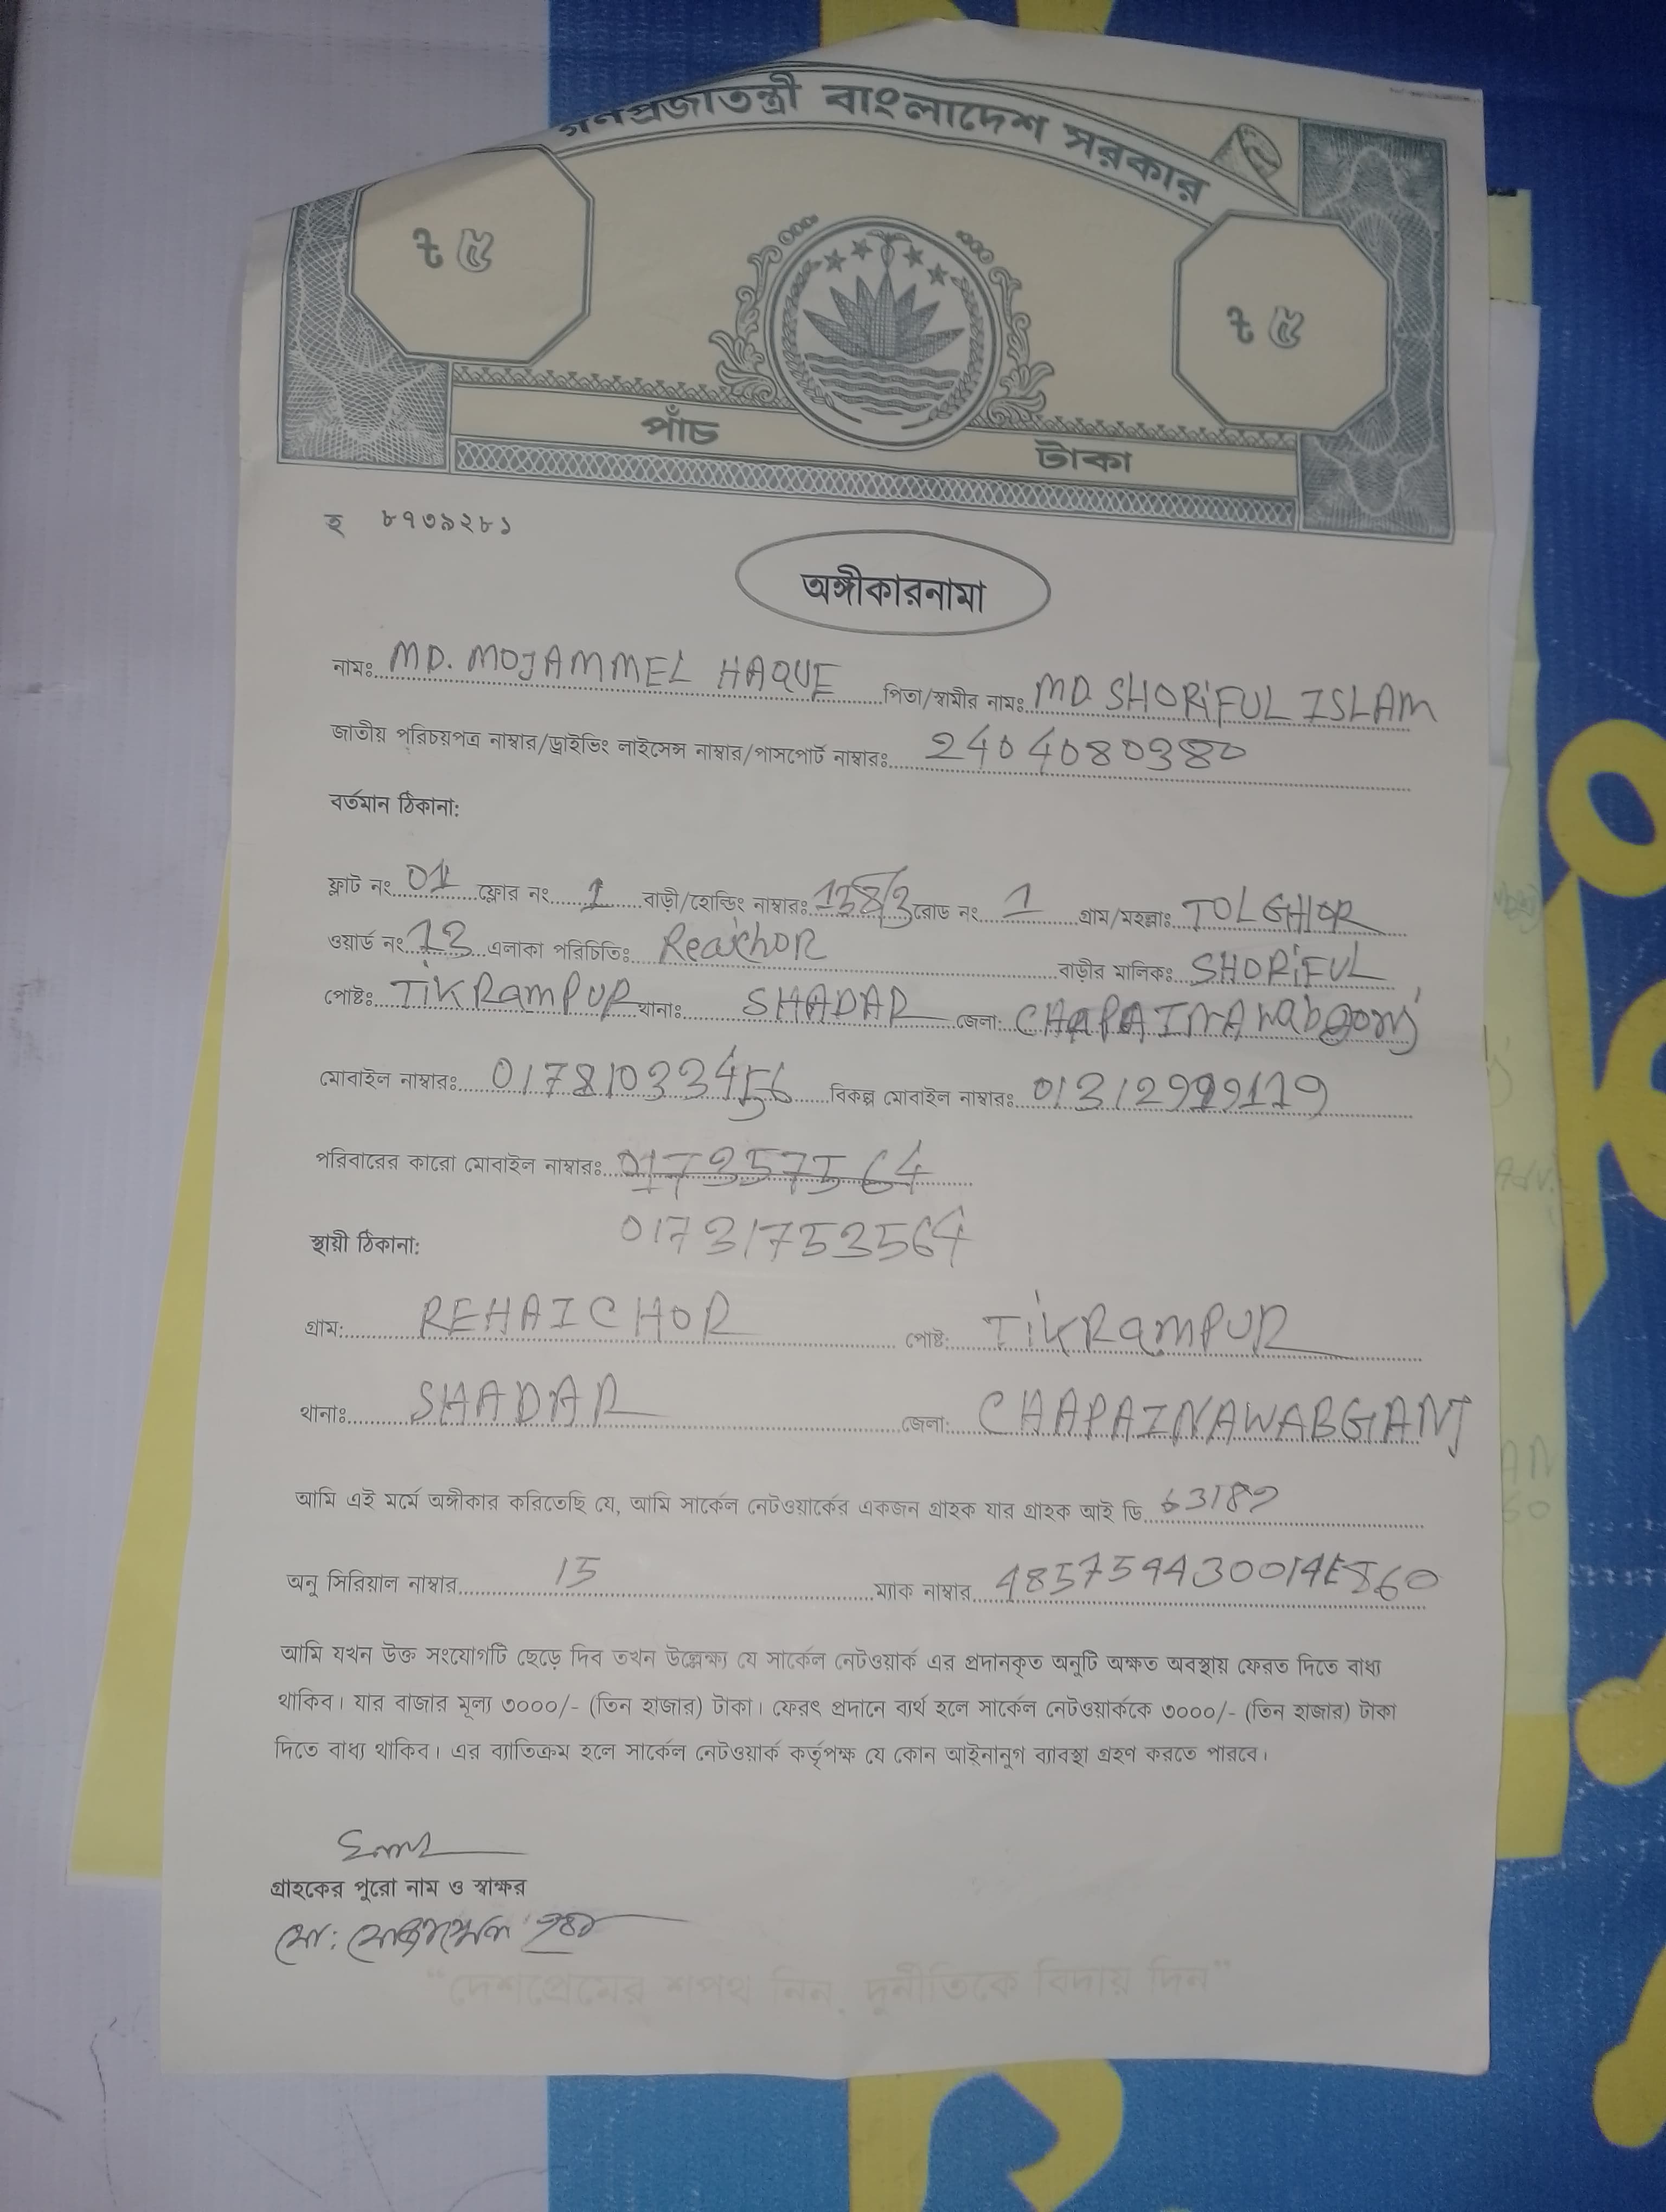 গণপ্রজাতন্ত্রী বাংলাদেশ সরকার
৳ ৫
৳ ৫
পাঁচ টাকা
হ ৮৭৩৯২৮১
অঙ্গীকারনামা
নামঃ MD. MOJAMMEL HAQUE পিতা/স্বামীর নামঃ MD SHORiFUL ISLAM
জাতীয় পরিচয়পত্র নাম্বার/ড্রাইভিং লাইসেন্স নাম্বার/পাসপোর্ট নাম্বারঃ 2404080380
বর্তমান ঠিকানা:
ফ্লাট নং 01 ফ্লোর নং 1 বাড়ী/হোল্ডিং নাম্বারঃ 138/3 রোড নং 1 গ্রাম/মহল্লাঃ TOLGHOR
ওয়ার্ড নং 13 এলাকা পরিচিতিঃ Reaichor বাড়ীর মালিকঃ SHORiFUL
পোষ্টঃ TiKRamPUR থানাঃ SHADAR জেলা:
মোবাইল নাম্বারঃ বিকল্প মোবাইল নাম্বারঃ
পরিবারের কারো মোবাইল নাম্বারঃ
01731753564
স্থায়ী ঠিকানা:
গ্রাম: REHAICHOR পোষ্ট: TiKRamPUR
থানাঃ SHADAR জেলা: CHAPAINAWABGANJ
আমি এই মর্মে অঙ্গীকার করিতেছি যে, আমি সার্কেল নেটওয়ার্কের একজন গ্রাহক যার গ্রাহক আই ডি 63189
অনু সিরিয়াল নাম্বার 15 ম্যাক নাম্বার
আমি যখন উক্ত সংযোগটি ছেড়ে দিব তখন উল্লেক্ষ্য যে সার্কেল নেটওয়ার্ক এর প্রদানকৃত অনুটি অক্ষত অবস্থায় ফেরত দিতে বাধ্য
থাকিব। যার বাজার মূল্য ৩০০০/- (তিন হাজার) টাকা। ফেরৎ প্রদানে ব্যর্থ হলে সার্কেল নেটওয়ার্ককে ৩০০০/- (তিন হাজার) টাকা
দিতে বাধ্য থাকিব। এর ব্যাতিক্রম হলে সার্কেল নেটওয়ার্ক কর্তৃপক্ষ যে কোন আইনানুগ ব্যাবস্থা গ্রহণ করতে পারবে।
গ্রাহকের পুরো নাম ও স্বাক্ষর
মো: মোজাম্মেল হক
“দেশপ্রেমের শপথ নিন, দুর্নীতিকে বিদায় দিন”